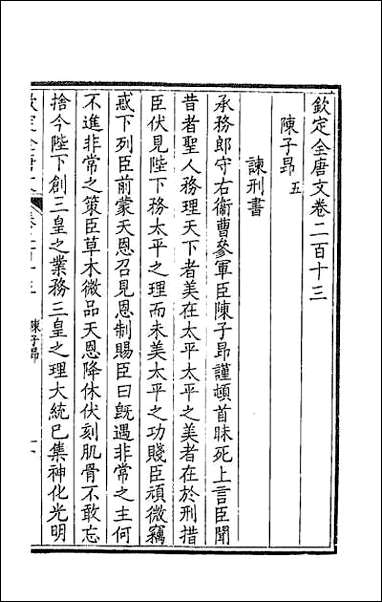 欽定全唐文卷二百十三
陳子昂 五
諫刑書
承務郎守右衞曹參軍臣陳子昂謹頓首昧死上言臣聞
昔者聖人務理天下者美在太平太平之美者在於刑措
臣伏見陛下務太平之理而未美太平之功賤臣頑微竊
惑下列臣前蒙天恩召見恩制賜臣曰旣遇非常之主何
不進非常之策臣草木微品天恩降休伏刻肌骨不敢忘
捨今陛下創三皇之業務三皇之理大統已集神化光明
欽定全唐文
卷二百十三
陳子昂
一